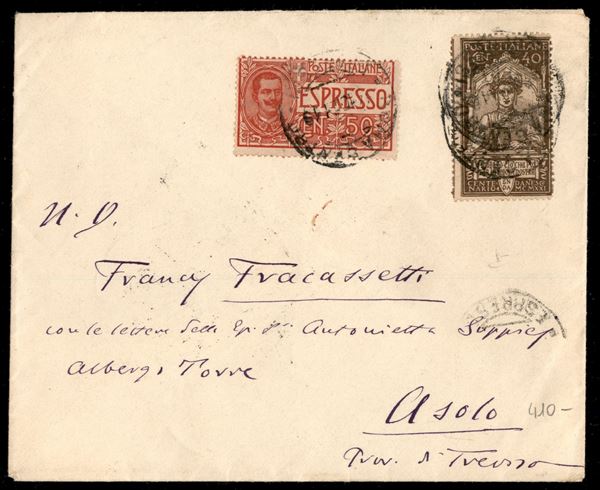 POSTE ITALIANE
ESPRESSO
CEN. 50
POSTE ITALIANE
CEN 40
CENTE DANESC
NARIO MCMXXI
N. D.
Francy Fracassetti
con le lettere della Antonietta
Albergo Torre
Asolo
Prov. di Treviso
ESPRE
410-